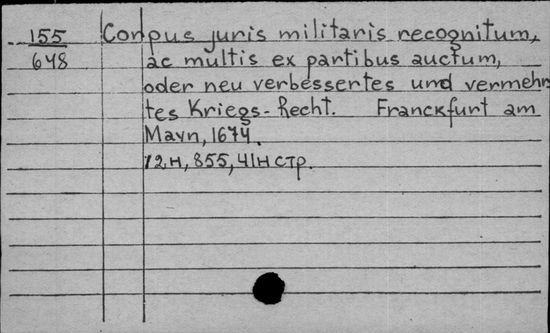 155 Corpus juris militaris recognitum,
648 ac multis ex partibus auctum,
oder neu verbessertes und vermehr
tes Kriegs-Recht. Franckfurt am
Mayn, 1674.
12н, 855, 41н стр.